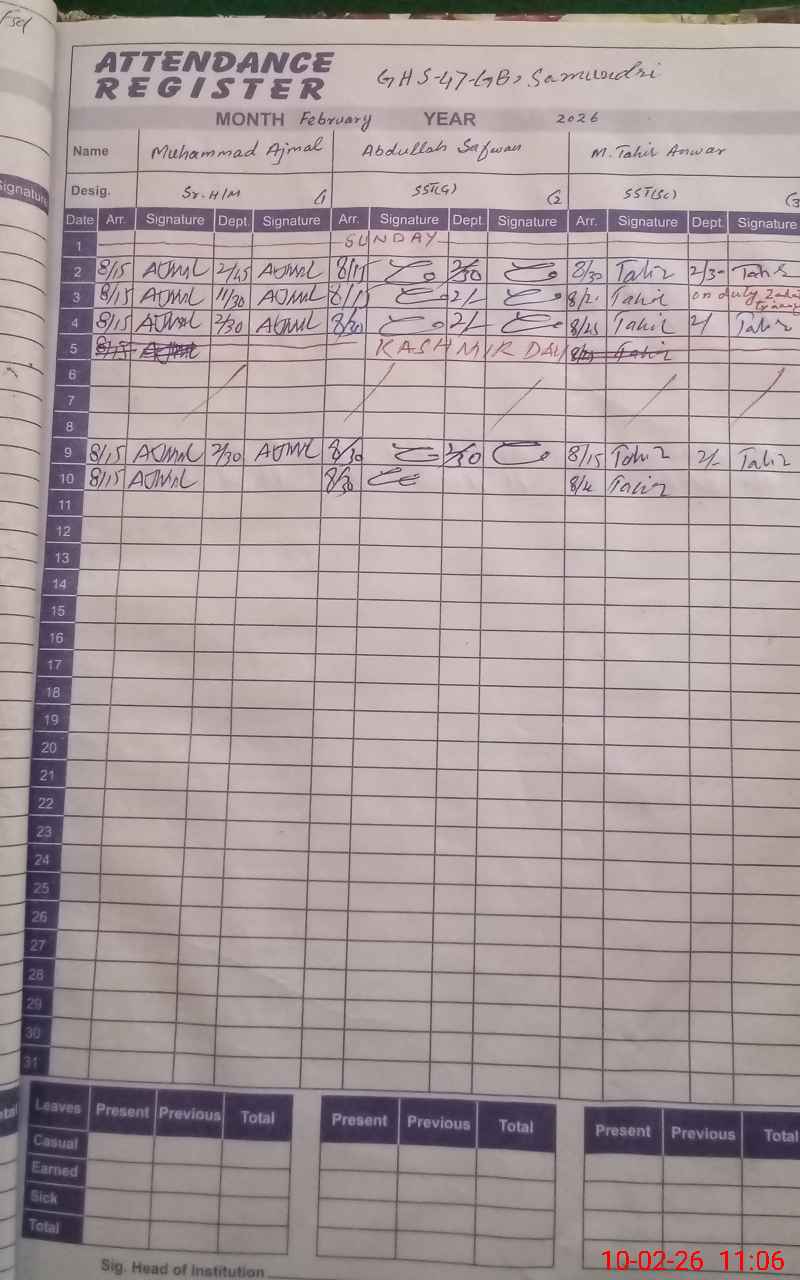 ATTENDANCE REGISTER GHS-47-GB, Samundri
MONTH February YEAR 2026
Name Muhammad Ajmal Abdullah Safwan M. Tahir Anwar
Desig. Sr. H/M (1 SST(G) (2 SST(SC) (3
Date Arr. Signature Dept. Signature Arr. Signature Dept. Signature Arr. Signature Dept. Signature
1 SUNDAY
2 8/15 AJMAL 2/45 AJMAL 8/15 2/30 8/30 Tahir 2/30 Tahir
3 8/15 AJMAL 11/30 AJMAL 8/15 2/- Tahir on duty
4 8/15 AJMAL 2/30 AJMAL 8/30 2/- 8/25 Tahir 2/ Tahir
5 KASHMIR DAY Tahir
6
7
8
9 8/15 AJMAL 2/30 AJMAL 8/30 2/30 8/15 Tahir 2/- Tahir
10 8/15 AJMAL 8/30 Tahir
11
12
13
14
15
16
17
18
19
20
21
22
23
24
25
26
27
28
29
30
31
Leaves Present Previous Total Present Previous Total Present Previous Total
Casual
Earned
Sick
Total
Sig. Head of Institution
10-02-26 11:06